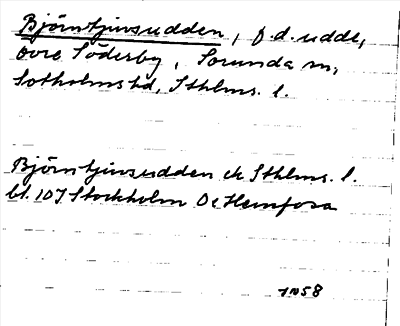 Björntjuvsudden, f.d. udde,
Övre Söderby, Sorunda sn,
Sotholms hd, Sthlms. l.
Björntjuvsudden ek Sthlms. l.
bl. 107 Stockholm
1958